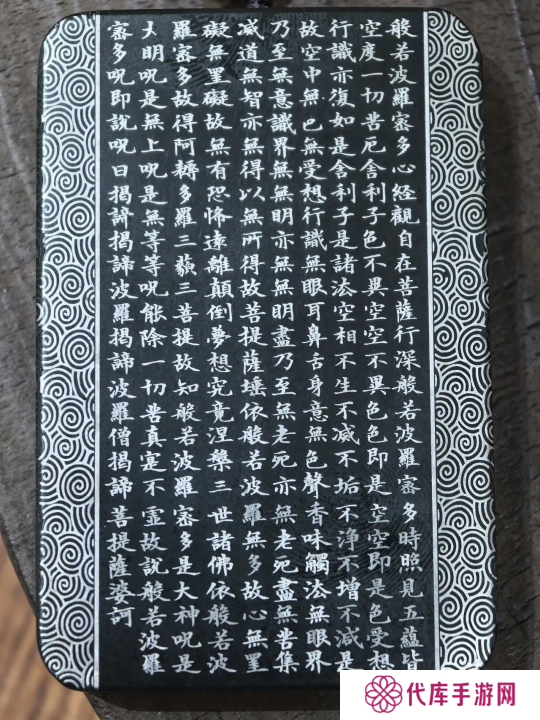 般若波羅密多心経觀自在菩薩行深般若波羅密多時照見五蘊皆
空度一切苦厄舍利子色不異空空不異色色即是空空即是色受想
行識亦復如是舍利子是諸法空相不生不滅不垢不淨不增不減是
故空中無色無受想行識無眼耳鼻舌身意無色聲香味觸法無眼界
乃至無意識界無無明亦無無明盡乃至無老死亦無老死盡無苦集
滅道無智亦無得以無所得故菩提薩埵依般若波羅無多故心無罣
礙無罣礙故無有恐怖遠離顛倒夢想究竟涅槃三世諸佛依般若波
羅密多故得阿耨多羅三藐三菩提故知般若波羅密多是大神呪是
大明呪是無上呪是無等等呪能除一切苦真寔不霊故説般若波羅
密多呪即説呪曰揭諦揭諦波羅揭諦波羅僧揭諦菩提薩婆訶
代库手游网